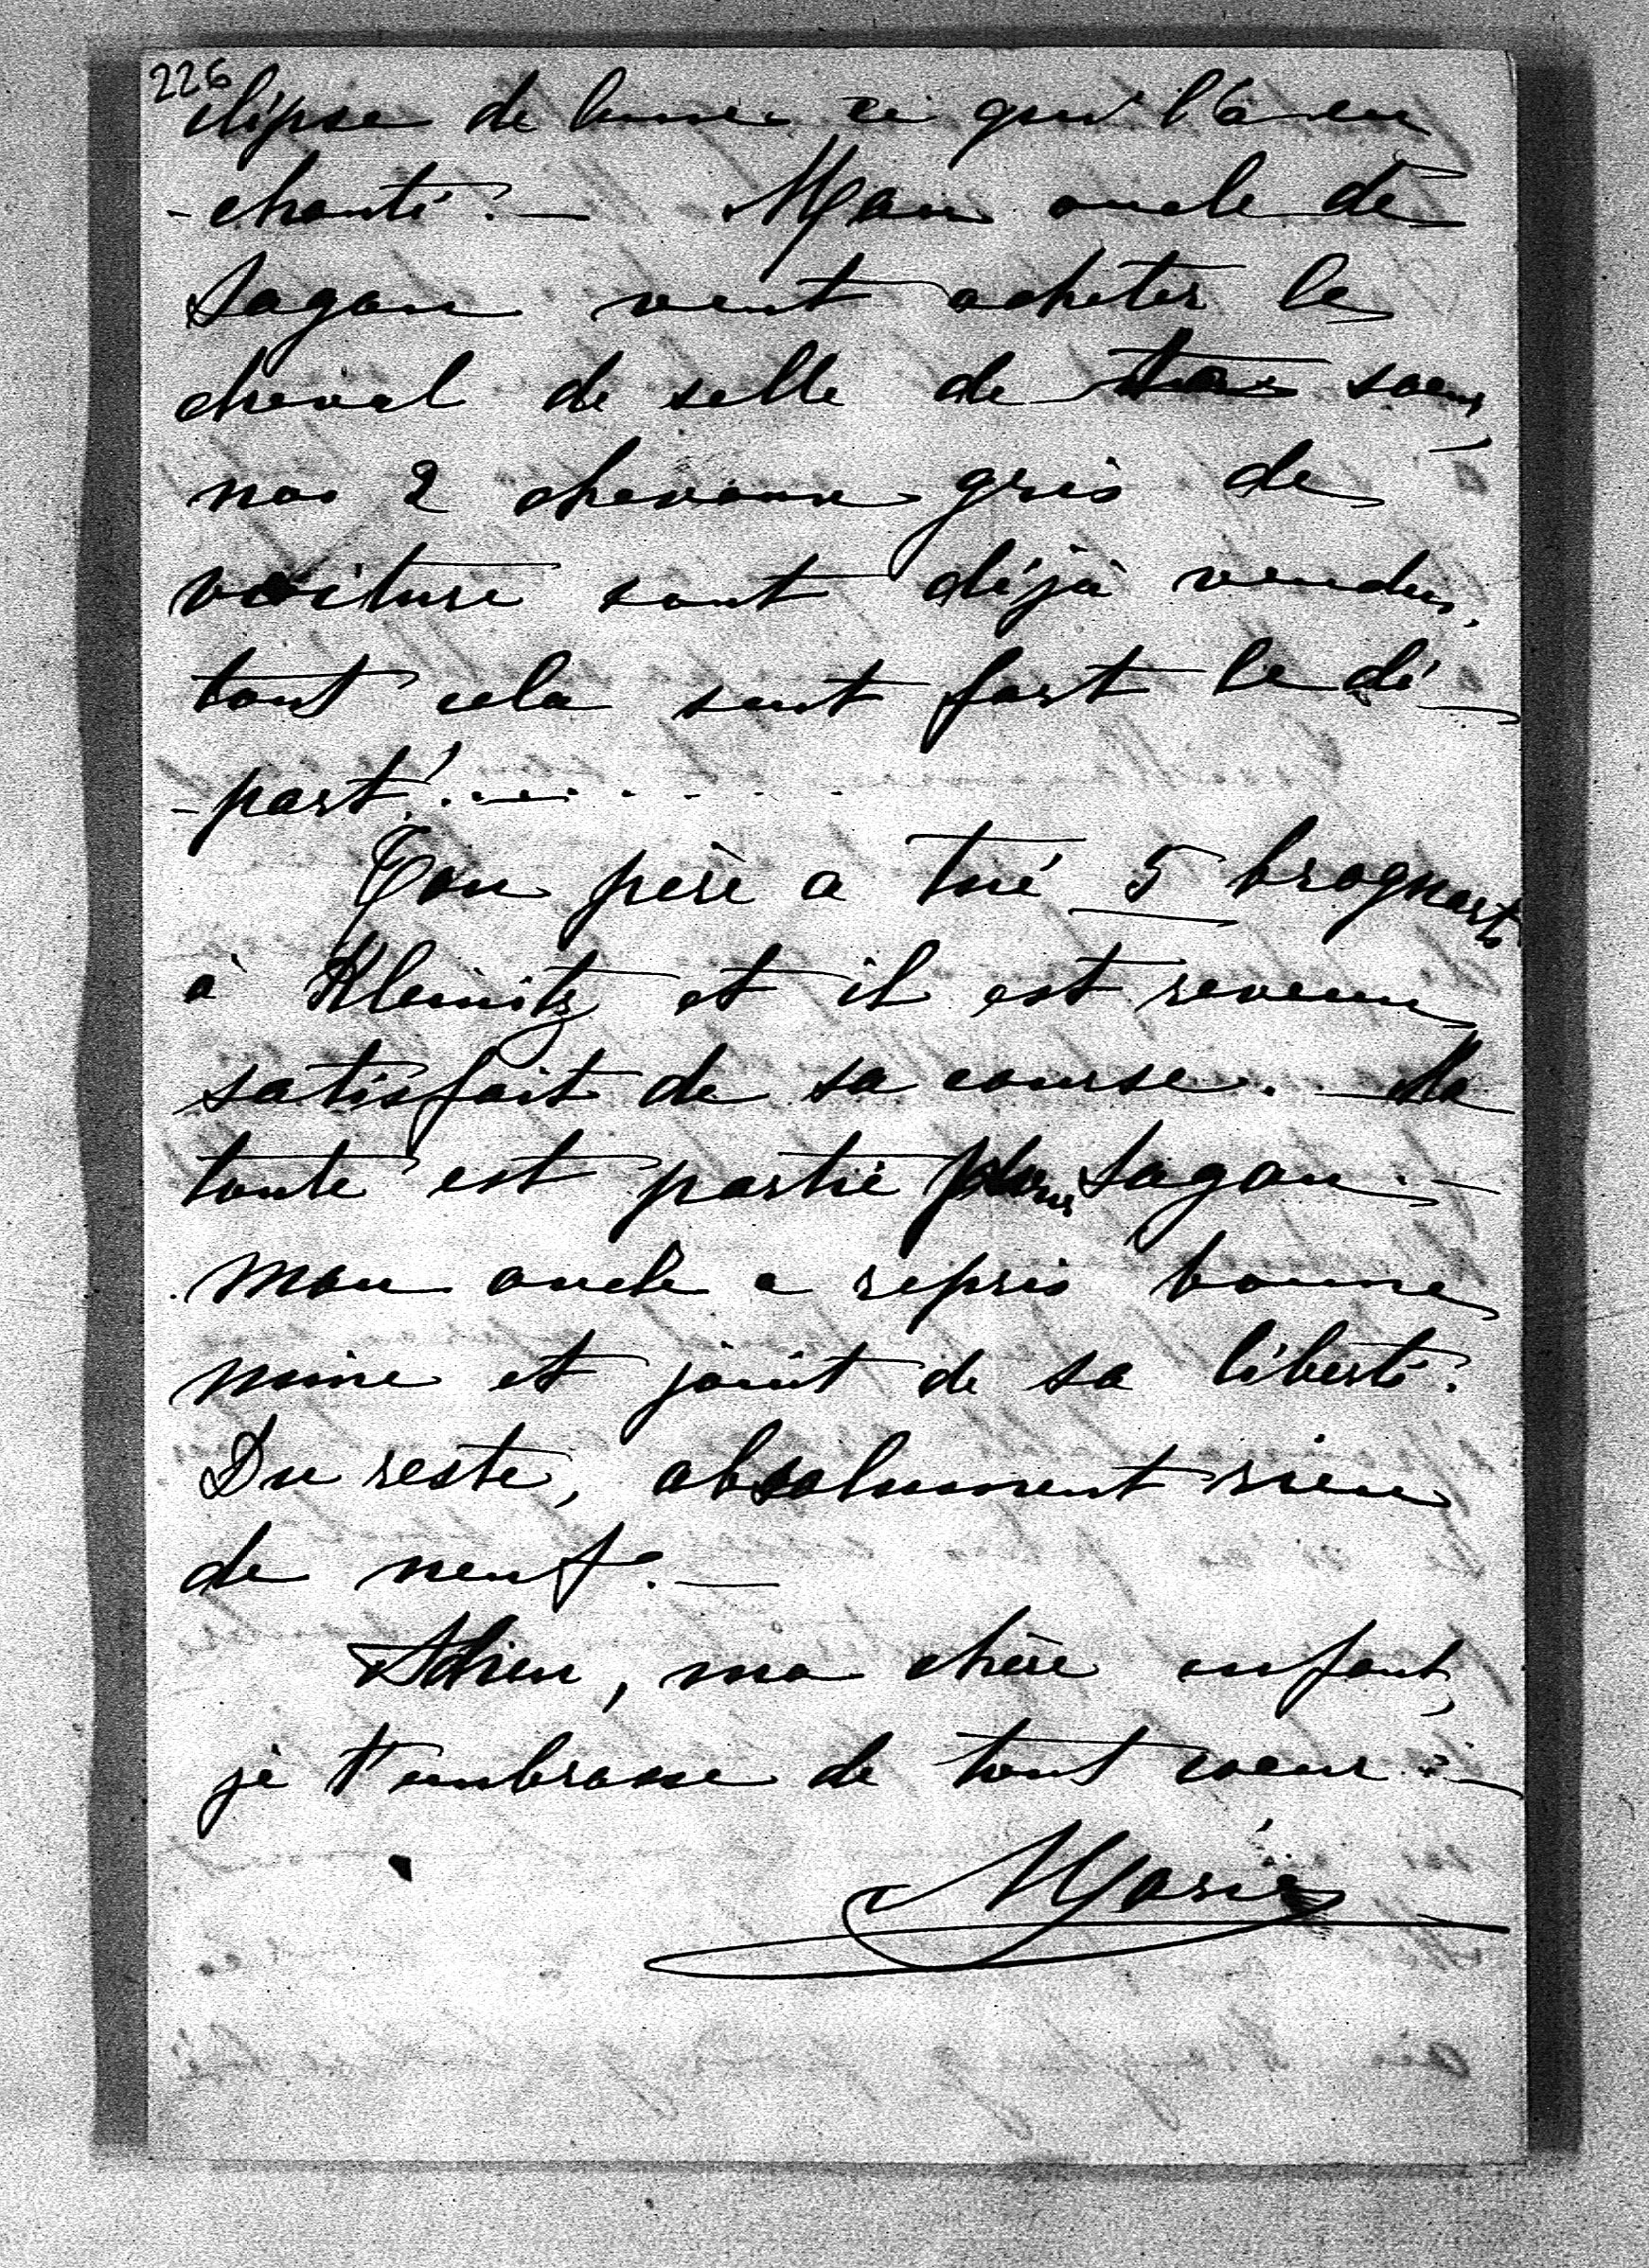 226
clipse de lune ce qui l'a en
-chanté. — Mon oncle de
Sagan veut acheter le
cheval de selle de ta soeur,
nos 2 chevaux gris de
voiture sont déjà vendus,
tout cela sent fort le dé-
-part!......
Ton père a tué 5 brognarts
à Kleinitz et il est revenu
satisfait de sa course. — Ma
tante est partie pour Sagan. —
mon oncle a repris bonne
mine et jouit de sa liberté.
Du reste, absolument rien
de neuf. —
Adieu, ma chère enfant,
je t'embrasse de tout coeur. —
Marie